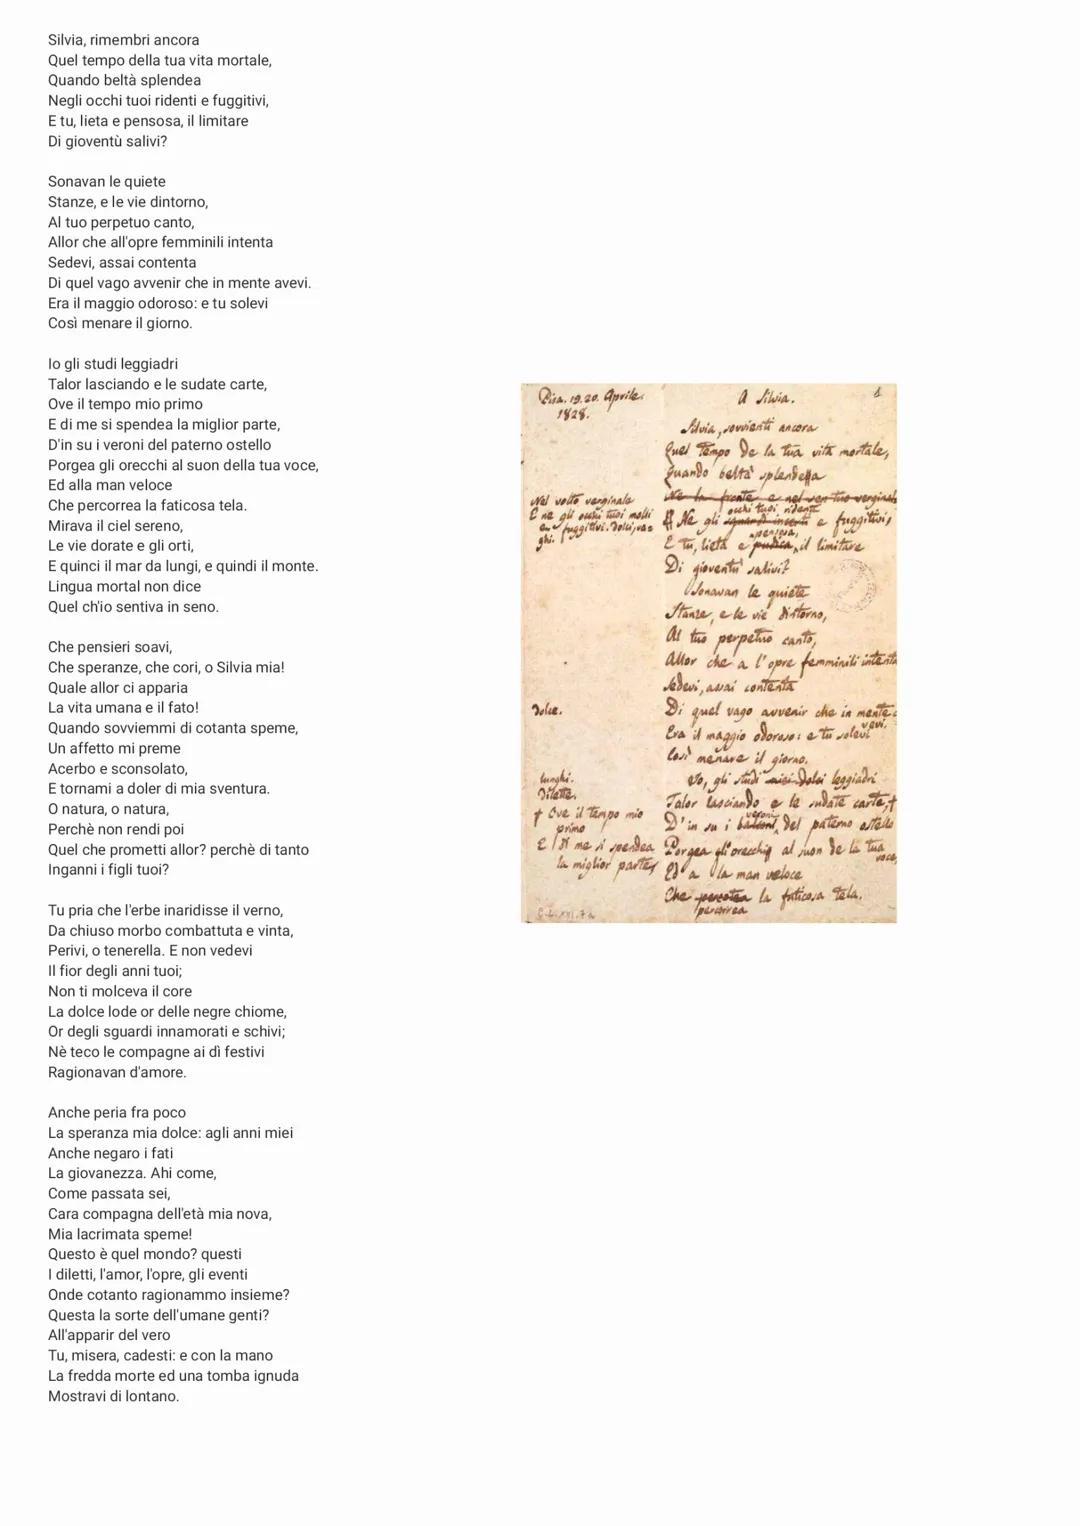 Silvia, rimembri ancora
Quel tempo della tua vita mortale,
Quando beltà splendea
Negli occhi tuoi ridenti e fuggitivi,
E tu, lieta e pensosa, il limitare
Di gioventù salivi?

Sonavan le quiete
Stanze, e le vie dintorno,
Al tuo perpetuo canto,
Allor che all'opre femminili intenta
Sedevi, assai contenta
Di quel vago avvenir che in mente avevi.
Era il maggio odoroso: e tu solevi
Così menare il giorno.

Io gli studi leggiadri
Talor lasciando e le sudate carte,
Ove il tempo mio primo
E di me si spendea la miglior parte,
D'in su i veroni del paterno ostello
Porgea gli orecchi al suon della tua voce,
Ed alla man veloce
Che percorrea la faticosa tela.
Mirava il ciel sereno,
Le vie dorate e gli orti,
E quinci il mar da lungi, e quindi il monte.
Lingua mortal non dice
Quel ch'io sentiva in seno.

Che pensieri soavi,
Che speranze, che cori, o Silvia mia!
Quale allor ci apparia
La vita umana e il fato!
Quando sovviemmi di cotanta speme,
Un affetto mi preme
Acerbo e sconsolato,
E tornami a doler di mia sventura.
O natura, o natura,
Perchè non rendi poi
Quel che prometti allor? perchè di tanto
Inganni i figli tuoi?

Tu pria che l'erbe inaridisse il verno,
Da chiuso morbo combattuta e vinta,
Perivi, o tenerella. E non vedevi
Il fior degli anni tuoi;
Non ti molceva il core
La dolce lode or delle negre chiome,
Or degli sguardi innamorati e schivi;
Nè teco le compagne ai dì festivi
Ragionavan d'amore.

Anche peria fra poco
La speranza mia dolce: agli anni miei
Anche negaro i fati
La giovanezza. Ahi come,
Come passata sei,
Cara compagna dell'età mia nova,
Mia lacrimata speme!
Questo è quel mondo? questi
I diletti, l'amor, l'opre, gli eventi
Onde cotanto ragionammo insieme?
Questa la sorte dell'umane genti?
All'apparir del vero
Tu, misera, cadesti: e con la mano
La fredda morte ed una tomba ignuda
Mostravi di lontano.

Pisa. 19.20. Aprile.
1828.
A Silvia.
1
Silvia, sovvienti ancora
Quel tempo de la tua vita mortale,
Quando beltà splendea
Ne la fronte e nel sen tuo verginal
Nel volto verginale
E ne gli occhi tuoi molli
e fuggitivi. dolci, va-
ghi.
occhi tuoi ridenti
Ne gli sguardi incerti e fuggitivi,
pensosa,
E tu, lieta e pudica, il limitare
Di gioventù salivi?
Sonavan le quiete
Stanze, e le vie dintorno,
Al tuo perpetuo canto,
Allor che a l'opre femminili intenta
Sedevi, assai contenta
dolce.
Di quel vago avvenir che in mente a
vevi.
Era il maggio odoroso: e tu solevi
Così menare il giorno.
lunghi.
dilette.
Io, gli studi miei dolci leggiadri
Talor lasciando e le sudate carte,
+ Ove il tempo mio
primo
E di me si spendea
la miglior parte,
veroni
D'in su i balconi del paterno ostello
Porgea gli orecchi al suon de la tua
voce,
Ed a la man veloce
Che percotea la faticosa tela.
percorrea